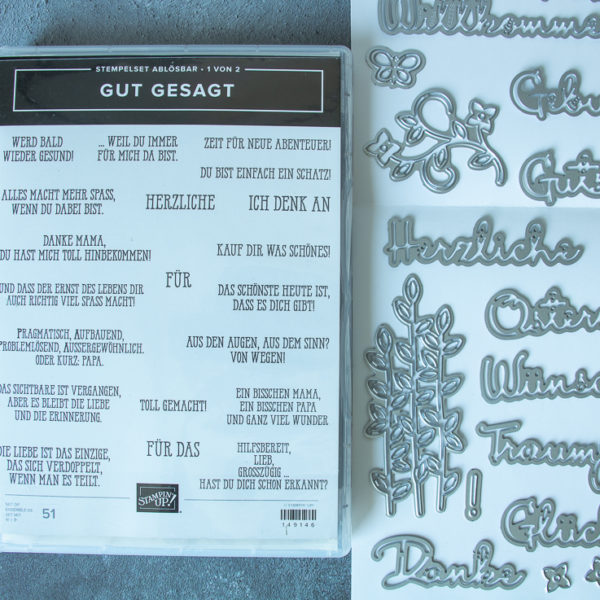 STEMPELSET ABLÖSBAR • 1 VON 2
GUT GESAGT
WERD BALD
WIEDER GESUND!
... WEIL DU IMMER
FÜR MICH DA BIST.
ZEIT FÜR NEUE ABENTEUER!
DU BIST EINFACH EIN SCHATZ!
ALLES MACHT MEHR SPASS,
WENN DU DABEI BIST.
HERZLICHE
ICH DENK AN
DANKE MAMA,
DU HAST MICH TOLL HINBEKOMMEN!
KAUF DIR WAS SCHÖNES!
FÜR
UND DASS DER ERNST DES LEBENS DIR
AUCH RICHTIG VIEL SPASS MACHT!
DAS SCHÖNSTE HEUTE IST,
DASS ES DICH GIBT!
PRAGMATISCH, AUFBAUEND,
PROBLEMLÖSEND, AUSSERGEWÖHNLICH.
ODER KURZ: PAPA.
AUS DEN AUGEN, AUS DEM SINN?
VON WEGEN!
DAS SICHTBARE IST VERGANGEN,
ABER ES BLEIBT DIE LIEBE
UND DIE ERINNERUNG.
TOLL GEMACHT!
EIN BISSCHEN MAMA,
EIN BISSCHEN PAPA
UND GANZ VIEL WUNDER
DIE LIEBE IST DAS EINZIGE,
DAS SICH VERDOPPELT,
WENN MAN ES TEILT.
FÜR DAS
HILFSBEREIT,
LIEB,
GROSSZÜGIG ...
HAST DU DICH SCHON ERKANNT?
SET OF
51
STAMPIN'
UP!
149146
Willkomm
Gebu
Gut
Herzliche
Oster
Wünsc
Traum
!
Glüc
Danke